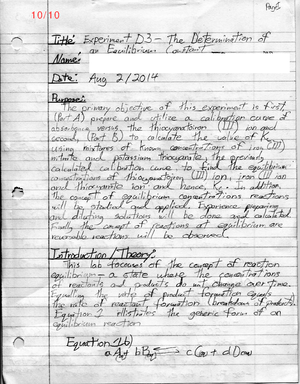 Page
10/10
Title: Experiment D3 - The Determination of
an Equilibrium Constant
Name:
Date: Aug 2/2014
Purpose:
The primary objective of this experiment is first,
(Part A) prepare and utilize a calibration curve of
absorbance versus the thiocyanatoiron (III) ion and
second, (Part B) to calculate the value of Kc
using mixtures of known concentrations of iron (III)
nitrate and potassium thiocyanate, the previously
calculated calibration curve to find the equilibrium
concentrations of thiocyanatoiron (III) ion, iron (III) ion
and thiocyanate ion and hence, Kc. In addition,
the concept of equilibrium concentrations reactions
will be studied and applied. Experience preparing
and diluting solutions will be done and calculated.
Finally the concept of reactions at equilibrium are
reversible reactions will be observed.
Introduction/Theory:
This lab focuses of the concept of reaction
equilibrium - a state where the concentrations
of reactants and products do not change over time.
Equalling the rates of product formation equals
the rate of reactant formation (breakdown of products).
Equation 2 illustrates the generic form of an
equilibrium reaction
Equation 2(b)
a A(g) + b B(g) ⇌ c C(g) + d D(g)